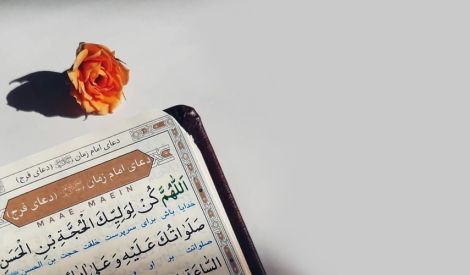 دعای امام زمان (دعای فرج)
دعای امام زمان (دعای فرج)
MAAE MAEIN
اَللّٰهُمَّ كُنْ لِوَلِيِّكَ الْحُجَّةِ بْنِ الْحَسَنِ
خدایا باش برای سرپرست خلقت حجت بن الحسن
صَلَواتُكَ عَلَيْهِ وَ
صلواتت بر او